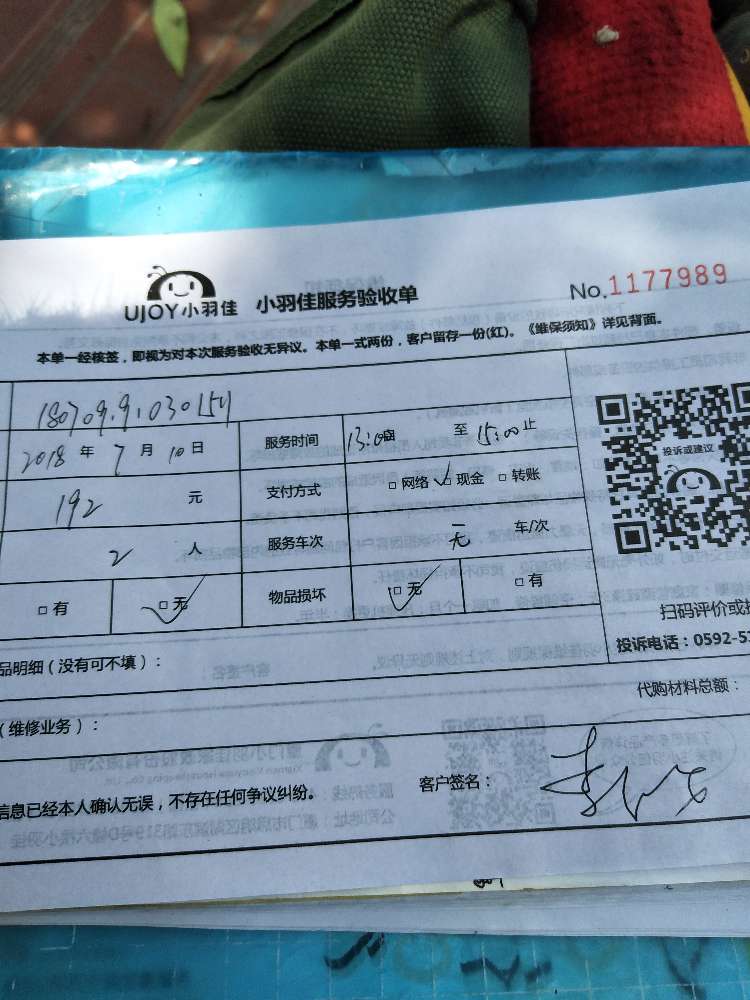 UJOY小羽佳 小羽佳服务验收单 No.1177989
本单一经核签，即视为对本次服务验收无异议。本单一式两份，客户留存一份(红)。《维保须知》详见背面。
2018年7月10日 服务时间 13:00 至 15:00止
192 元 支付方式 □网络 □现金 □转账
2 人 服务车次 无 车/次
□有 □无 物品损坏 □无 □有
投诉或建议
扫码评价或
投诉电话：0592-5
品明细（没有可不填）：
代购材料总额：
（维修业务）：
信息已经本人确认无误，不存在任何争议纠纷。 客户签名：